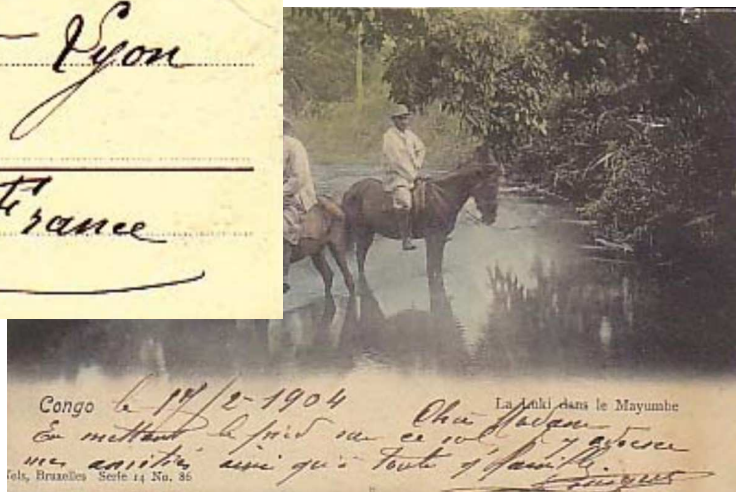 Lyon
France
Congo le 17/2-1904
La Luki dans le Mayumbe
Chère Madame
En mettant le pied sur ce sol, j'y adresse
mes amitiés ainsi qu'à toute la famille
Nels, Bruxelles Serie 14 No. 86